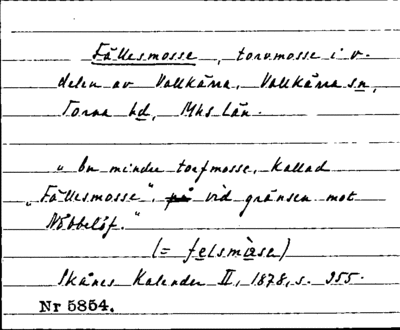 Fällesmosse, torvmosse i v.
delen av Vallkärra, Vallkärra sn,
Torna hd, Mhs län.
" En mindre torfmosse, kallad
"Fällesmosse", på vid gränsen mot
Nöbbelöf."
(= felsmåse)
Skånes Kalender II, 1878, s. 355.
Nr 5854.